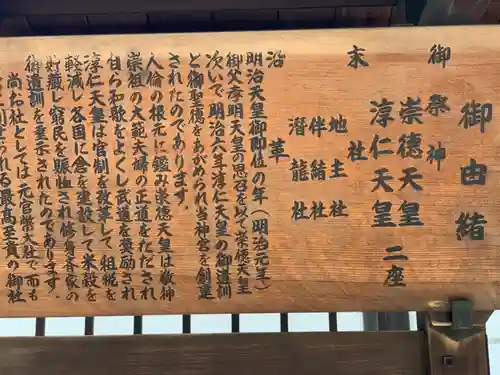 御由緒
御祭神
崇德天皇
淳仁天皇
二座
末社
地主社
伴緒社
潜龍社
沿革
明治天皇御即位の年(明治元年)
御父孝明天皇の思召を以て崇徳天皇
次いで明治六年淳仁天皇の御遺訓
と御聖徳をあがめられ当神宮を創建
されたのであります。
人倫の根元に鑑み崇徳天皇は敬神
崇祖の大範夫婦の正道をたださされ
自ら和歌をよくし武道を奨励され
淳仁天皇は官制を改革して租税を
軽減し各国に倉を建設して米穀を
貯蔵し窮民を賑恤され修身斉家の
御遺訓を垂示されたのであります
尚お社としては元官幣大社で而も
られる最高至貴の御社